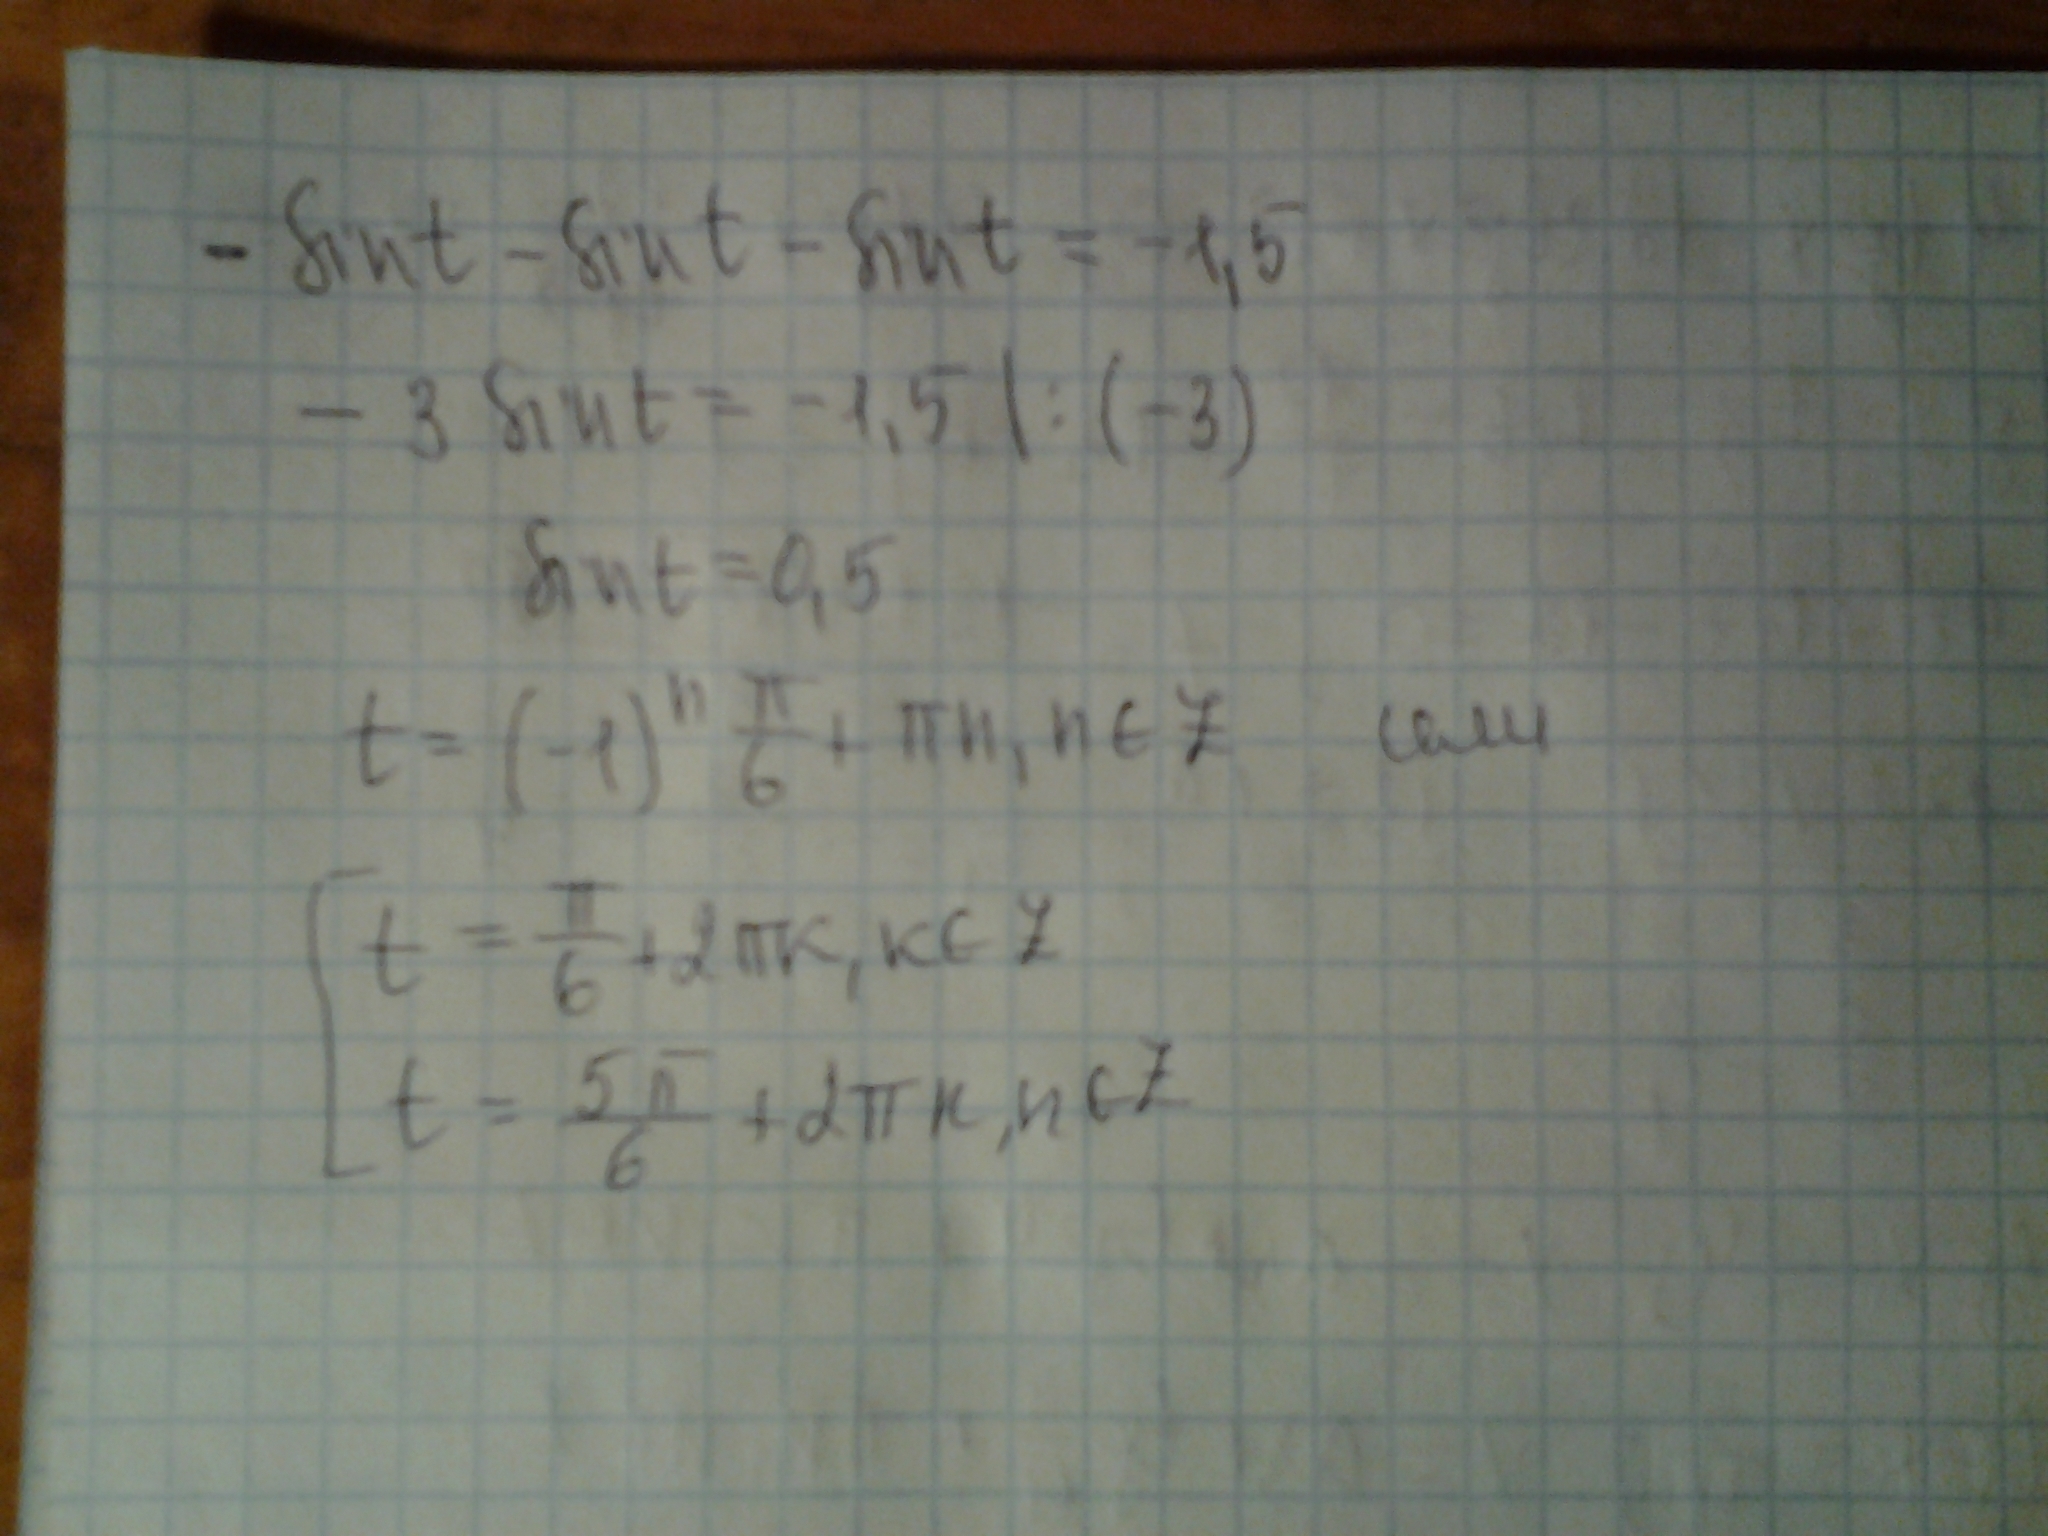 - sin t - sin t - sin t = -1,5
- 3 sin t = -1,5 | : (-3)
sin t = 0,5
t = (-1)ⁿ π/6 + πn, n ∈ Z
t = π/6 + 2πк, к ∈ Z
t = 5π/6 + 2πк, n ∈ Z